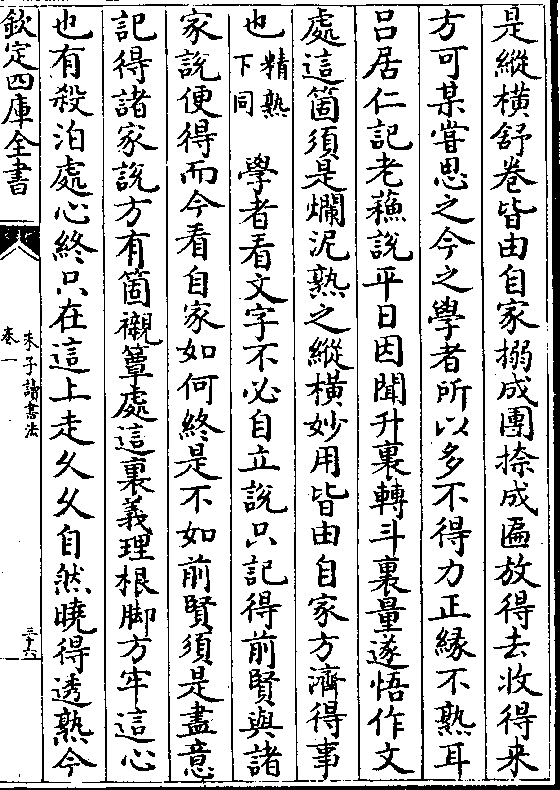 是縱橫舒卷皆由自家搦成團捺成匾放得去收得来
方可某嘗思之今之學者所以多不得力正縁不熟耳
吕居仁記老蘓說平日因聞升裏轉斗裏量遂悟作文
處這箇須是爛泥熟之縱橫妙用皆由自家方濟得事
也精熟下同 學者看文字不必自立說只記得前賢與諸
家說便得而今看自家如何終是不如前賢須是盡意
記得諸家說方有箇襯簟處這裏義理根脚方牢這心
也有殺泊處心終只在這上走久久自然曉得透熟今
欽定四庫全書
朱子讀書法
卷一
三十六